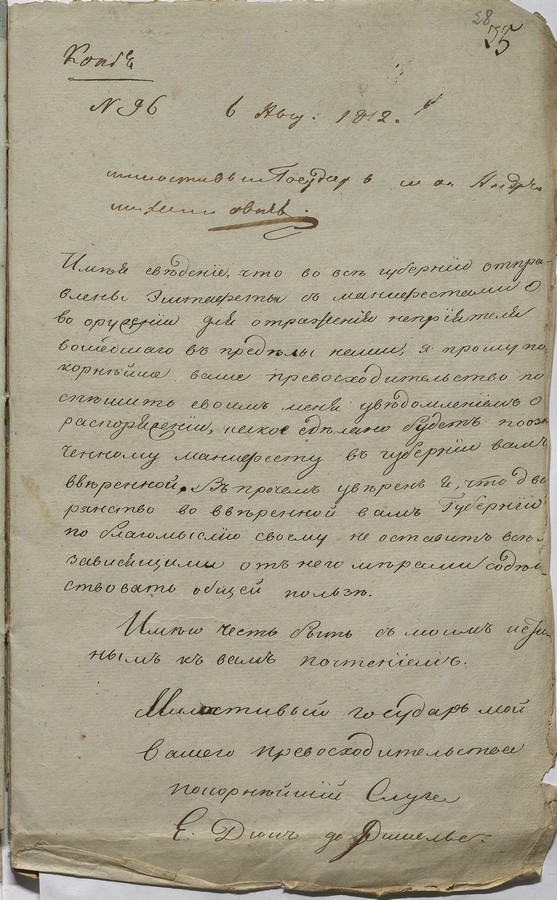 28
35
Копiя
N 96 6 Авгу: 1812.
милостивый Государь мой Андрей
михаиловичь.
Имѣя сведѣнiе, что во всѣ губернiи отпра-
влены Эштафеты съ манифестами о
во оруженiи для отраженiя непрiятеля
вошедшаго въ предѣлы наши, я прошу по
корнѣйше ваше превосходительство по
спѣшить своимъ меня увѣдомленiемъ о
распоряженiи, какое сдѣлано будетъ по озна
ченному манифесту въ губернiи вамъ
ввѣренной. Въ прочемъ увѣренъ я, что дво
рянство во ввѣренной вамъ Губернiи
по благомыслiю своему не оставитъ всѣ
зависящими отъ него мѣрами содѣй
ствовать общей пользѣ.
Имѣю честь быть съ моимъ истин
нымъ къ вамъ почтенiемъ.
Милостивый государь мой
вашего превосходительства
покорнѣйшiй Слуга
Е. Дюкъ де Ришелье.